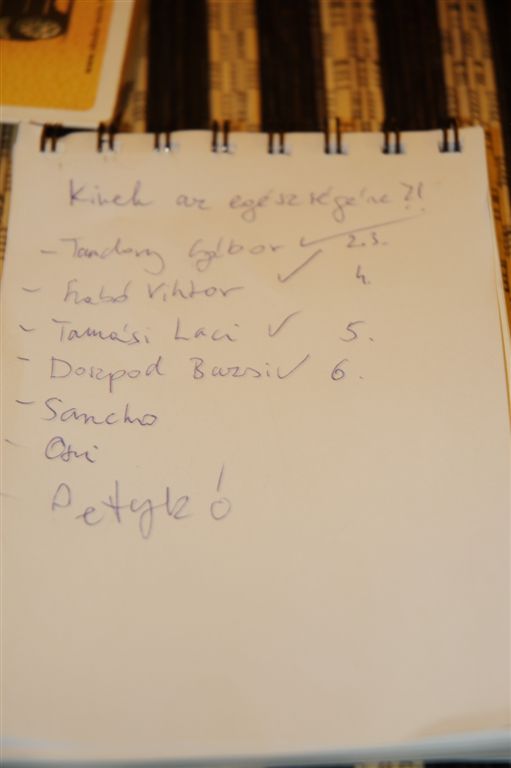 Kinek az egészségére?!
- Tandory Gábor ✓ 2.3.
- Szabó Viktor ✓ 4.
- Tamási Laci ✓ 5.
- Doszpod Bazsi ✓ 6.
- Sancho
- Osi
- Petykó